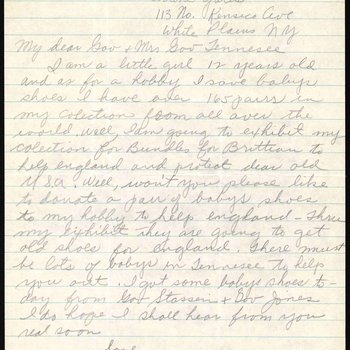 113 No. Kensico Ave
White Plains NY
My dear Gov + Mrs Gov Tennesee
I am a little girl 12 years old
and as for a hobby I save babys
shoes I have over 165 pairs in
my colections from all over the
world. Well, I am going to exhibit my
colection for Bundles for Brittian to
help england and protect dear old
U.S.A. Well, won't you please like
to donate a pair of babys shoes
to my hobby to help england - Thru
my exhibit they are going to get
old shoes for england. There must
be lots of babys in Tennesee to help
you out. I got some babys shoes to-
day from Gov Stassen + Gov Jones
I do hope I shall hear from you
real soon